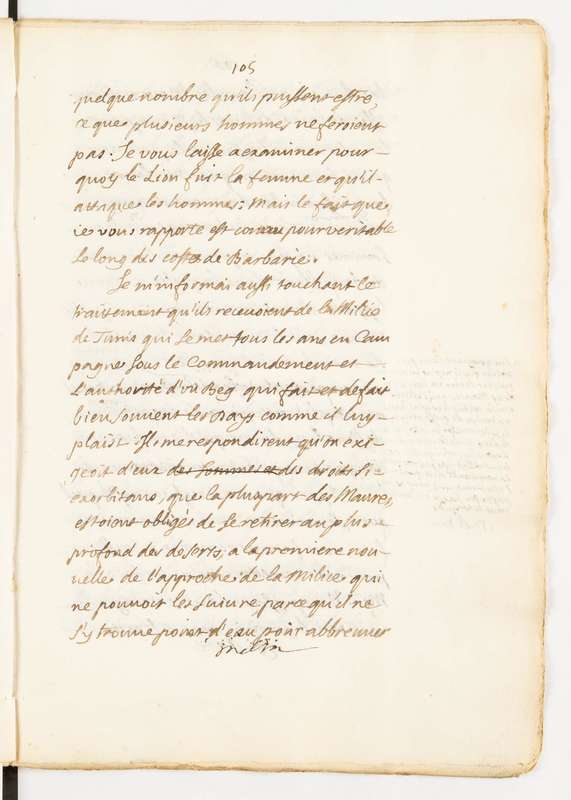 105
quelque nombre qu'ils puissent estre,
ce que plusieurs hommes ne feroient
pas. Je vous laisse a examiner pour-
quoy le Lion fuit la femme et qu'il
attaque les hommes: mais le fait que
ie vous rapporte est connu pour veritable
le long des costes de Barbarie.
Je m'informai aussi touchant le
traitement qu'ils recevoient de la Milice
de Tunis qui se met tous les ans en Cam
pagne sous le Commandement et
L'authorité d'un Beg qui fait et defait
bien souvent les Days comme il luy
plaist. Il me respondirent qu'on exi-
geoit d'eux des sommes et des droits si
exorbitans, que la pluspart des Maures,
estoient obligés de se retirer au plus
profond des deserts, a la premiere nou-
uelle de l'approche de la Milice qui
ne pouvoit les suivre parce qu'il ne
s'y trouve point d'eau pour abbreuver